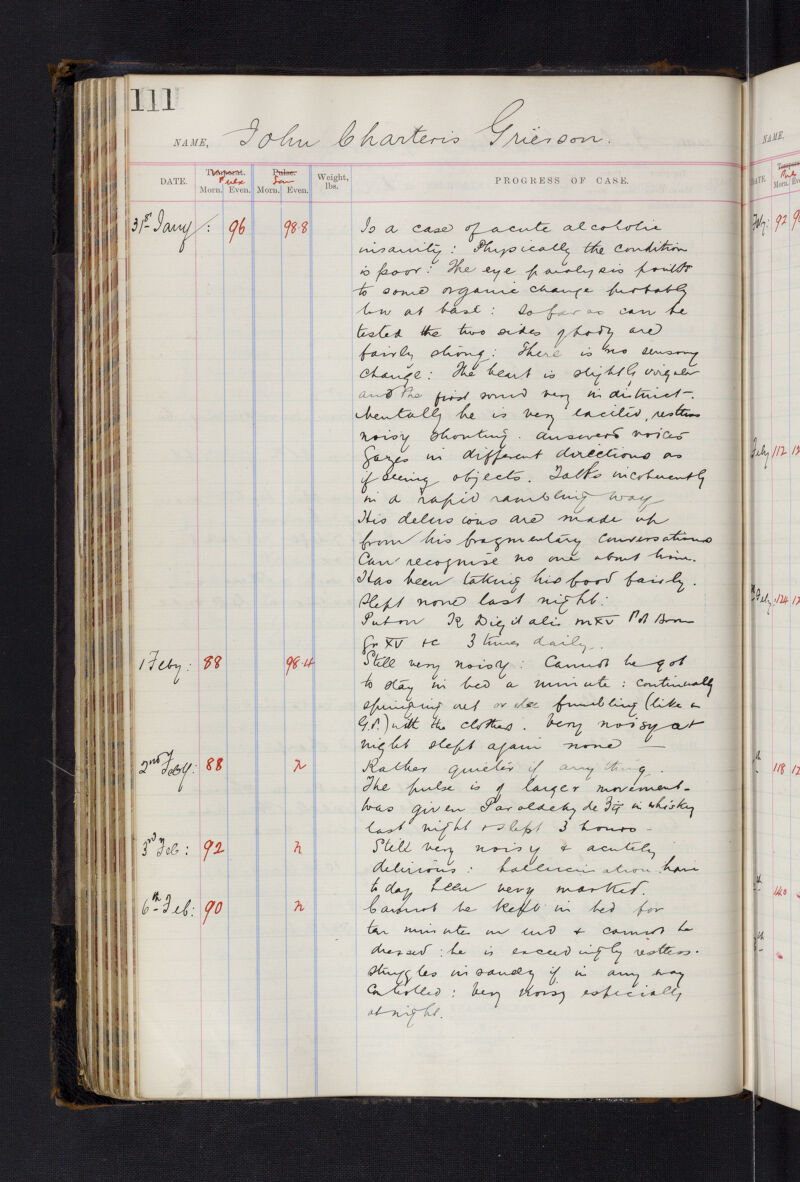 111
NAME, John Charteris Grierson.
DATE. Temperat. Pulse. Weight, lbs. PROGRESS OF CASE.
Pulse
Morn. Even. Morn. Even.
31st Jany: 96 98.8 Is a case of acute alcoholic
insanity: Physically the condition
is poor: The eye paralysis points
to some organic change probably
low at base: so far as can be
tested the two sides of body are
fairly strong: There is no sensory
change: The heart is slightly irregular
and the first sound very indistinct.
Mentally he is very excited, restless
noisy shouting. answers voices
Gazes in different directions as
if seeing objects. Talks incoherently
in a rapid rambling way
His delusions are made up
from his fragmentary conversations
Can recognise no one about him.
Has been taking his food fairly.
Slept none last night:
Put on Digitalis mXV Pot Brom
Gr XV tc 3 times daily.
1 Feby: 88 98.4 Still very noisy: Cannot be got
to stay in bed a minute: continually
springing out or else fumbling (like a
G.P.) with the clothes. Very noisy at
night slept again none —
2nd Feby: 88 n Rather quieter if anything.
The pulse is of larger movement.
Was given Paraldehyde in whiskey
last night & slept 3 hours —
3rd Feb: 92 n Still very noisy & acutely
delirious: hallucinations have
to day been very marked.
6th Feb: 90 n Cannot be kept in bed for
ten minutes on end & cannot be
dressed: he is exceedingly restless.
Struggles insanely if in any way
controlled: Very noisy especially
at night.
NAME.
DATE.
Morn.
Feby: 92
Feby 112
Feby 124
118
140